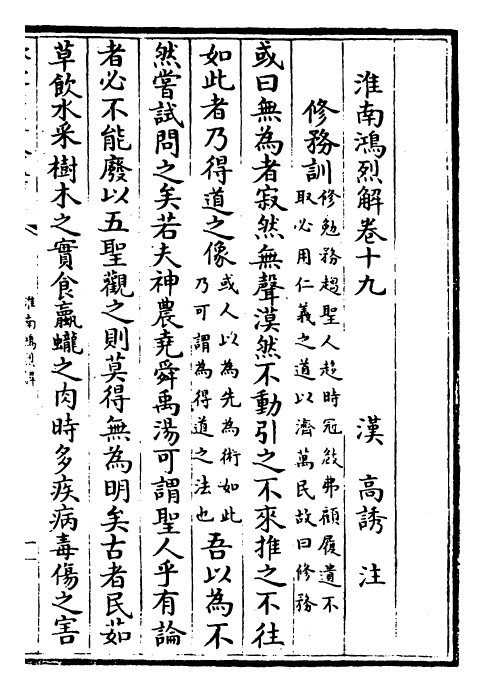 淮南鴻烈解卷十九
漢 高誘 注
修務訓修勉務趨聖人趨時冠㪇弗顧履遺不
取必用仁義之道以濟萬民故曰修務
或曰無為者寂然無聲漠然不動引之不來推之不往
如此者乃得道之像或人以為先為術如此
乃可謂為得道之法也吾以為不
然嘗試問之矣若夫神農堯舜禹湯可謂聖人乎有論
者必不能廢以五聖觀之則莫得無為明矣古者民茹
草飲水采樹木之實食蠃蠬之肉時多疾病毒傷之害
淮南鴻烈解